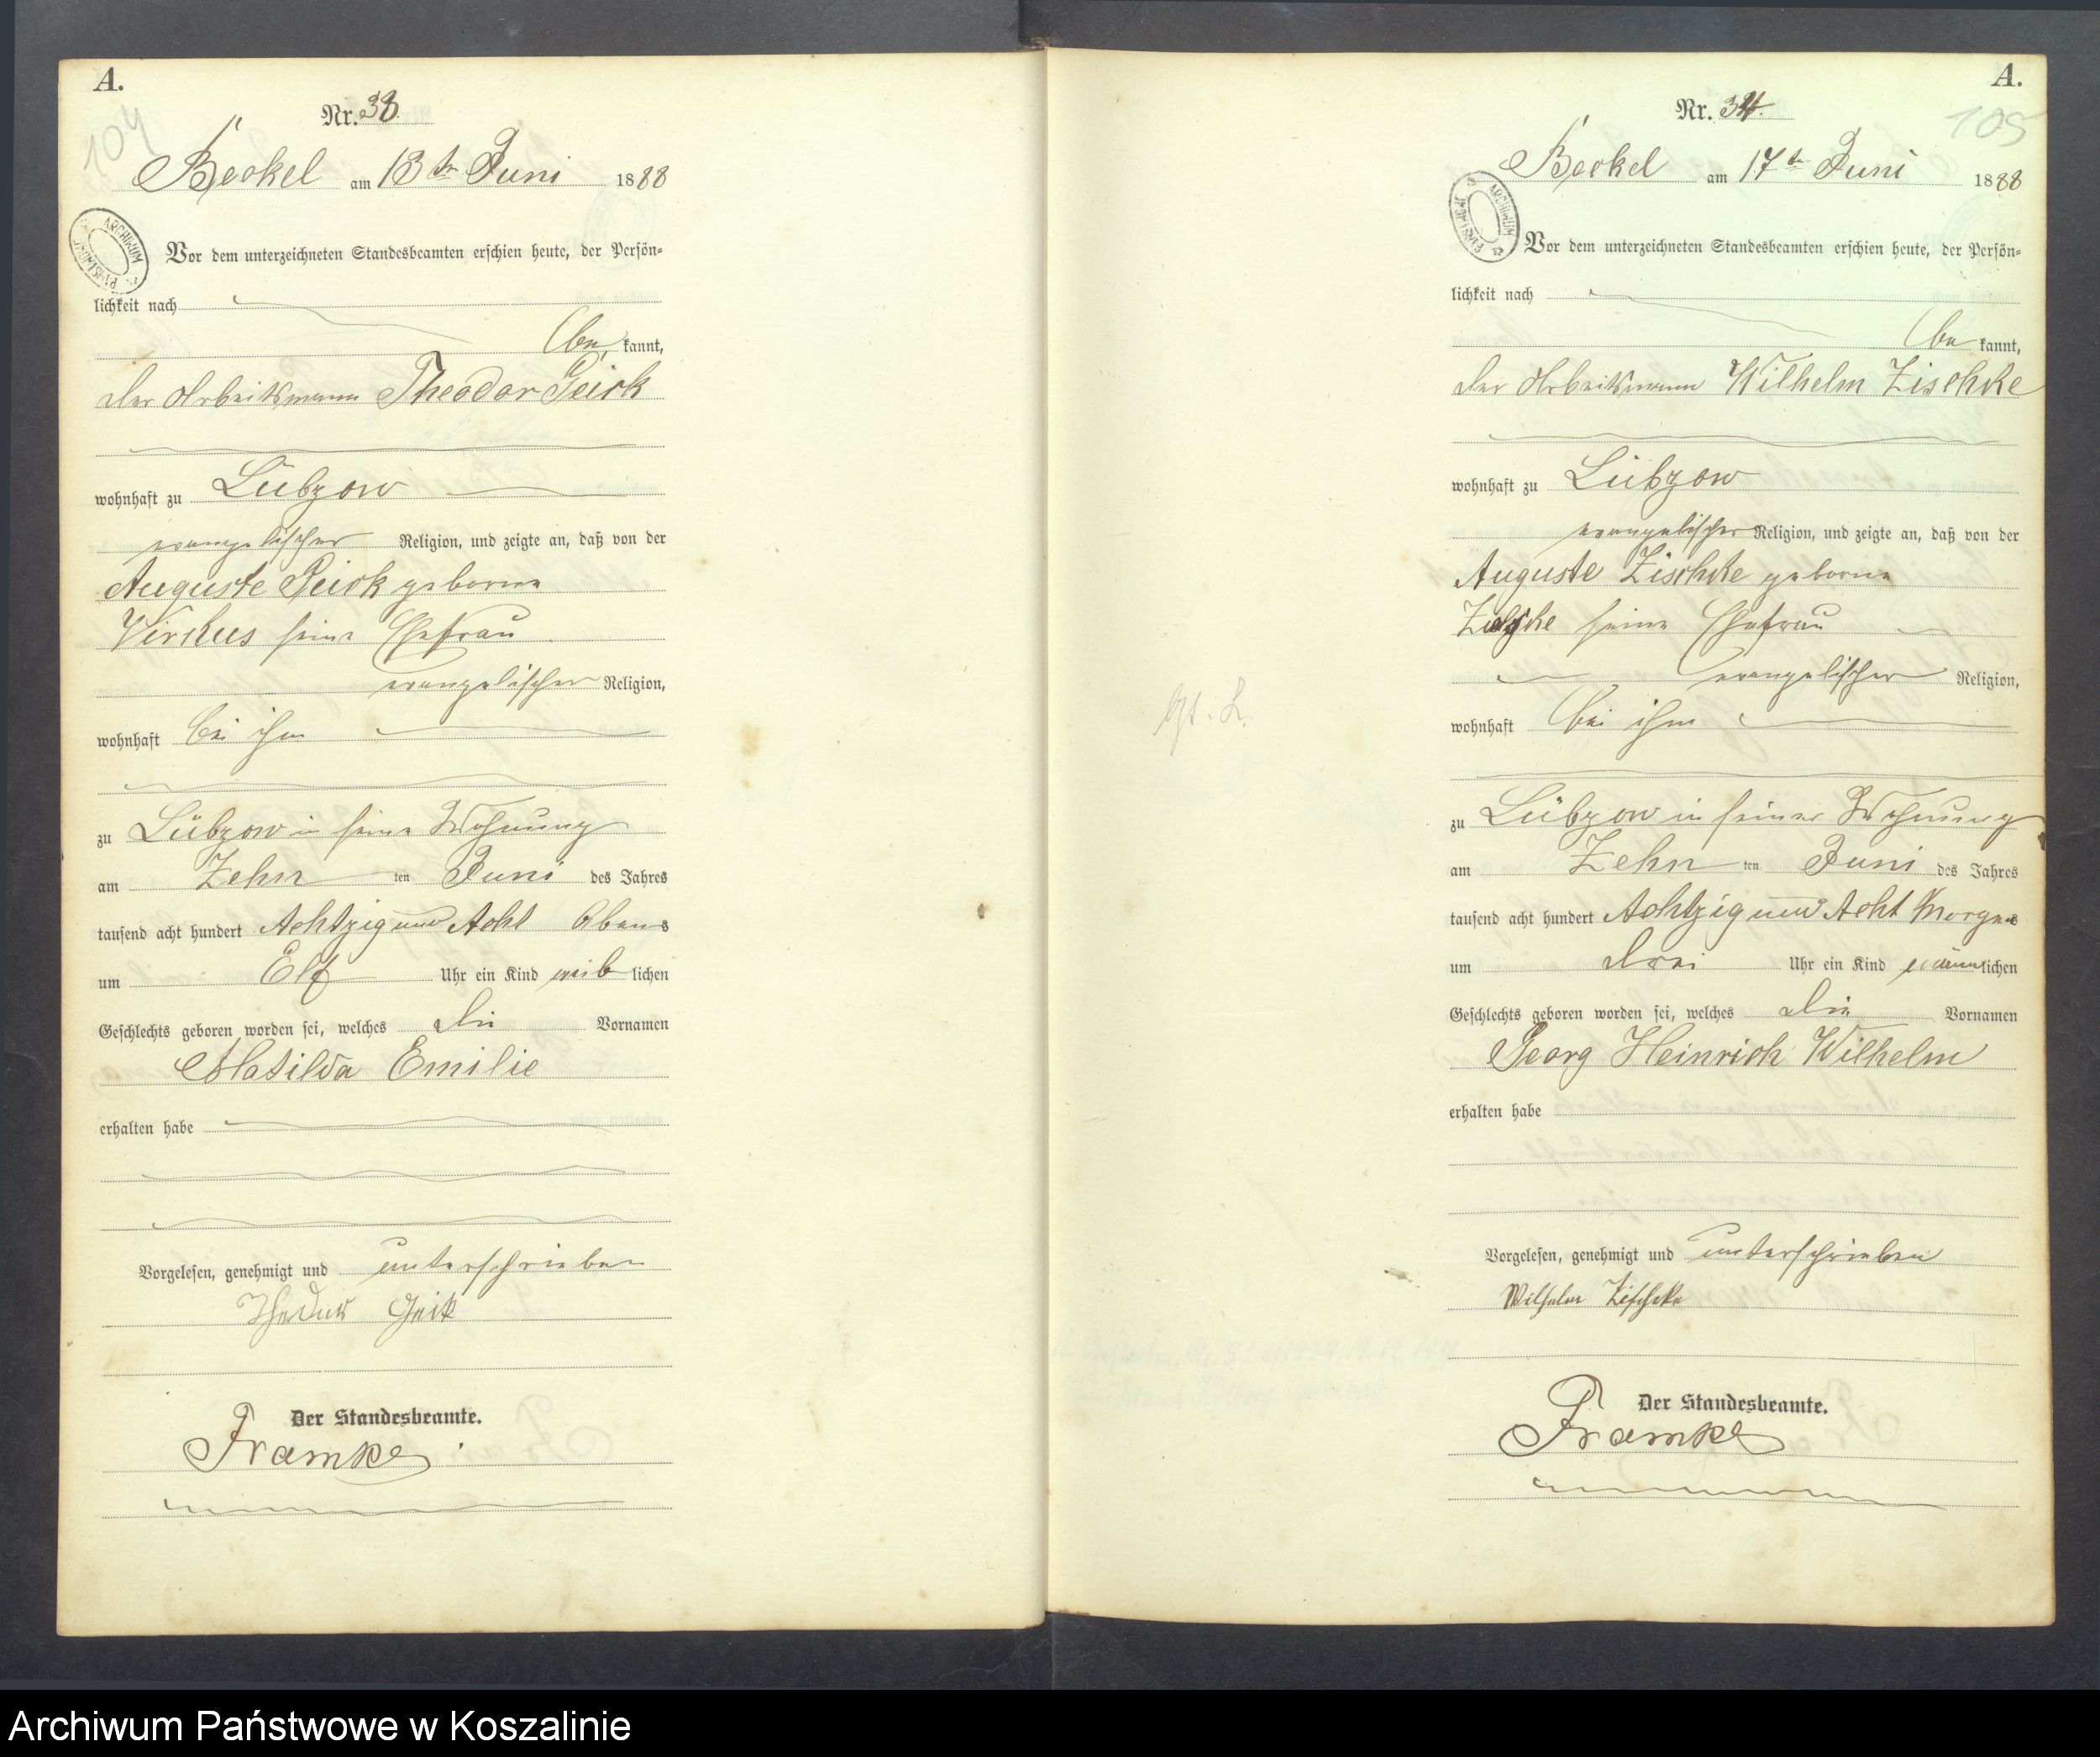 A.
104
Nr. 33.
Beckel am 13ten Juni 1888
ARCHIWUM PAŃSTWOWE
Vor dem unterzeichneten Standesbeamten erschien heute, der Persön-
lichkeit nach
be kannt,
der Arbeitsmann Theodor Geick
wohnhaft zu Lübzow
evangelischer Religion, und zeigte an, daß von der
Auguste Geick geborne
Virkus seine Ehefrau
evangelischer Religion,
wohnhaft bei ihm
zu Lübzow in seine Wohnung
am Zehn ten Juni des Jahres
tausend acht hundert Achtzig und Acht Abens
um Elf Uhr ein Kind weib lichen
Geschlechts geboren worden sei, welches die Vornamen
Matilda Emilie
erhalten habe
Vorgelesen, genehmigt und unterschrieben
Theodor Geik
Der Standesbeamte.
Framke
A.
105
Nr. 34.
Beckel am 17ten Juni 1888
ARCHIWUM PAŃSTWOWE
Vor dem unterzeichneten Standesbeamten erschien heute, der Persön-
lichkeit nach
be kannt,
der Arbeitsmann Wilhelm Zischke
wohnhaft zu Lübzow
evangelischer Religion, und zeigte an, daß von der
Auguste Zischke geborne
seine Ehefrau
evangelischer Religion,
wohnhaft bei ihm
zu Lübzow in seiner Wohnung
am Zehn ten Juni des Jahres
tausend acht hundert Achtzig und Acht Morgens
um Drei Uhr ein Kind männlichen
Geschlechts geboren worden sei, welches die Vornamen
Georg Heinrich Wilhelm
erhalten habe
Vorgelesen, genehmigt und unterschrieben
Wilhelm Zischke
Der Standesbeamte.
Framke
Archiwum Państwowe w Koszalinie